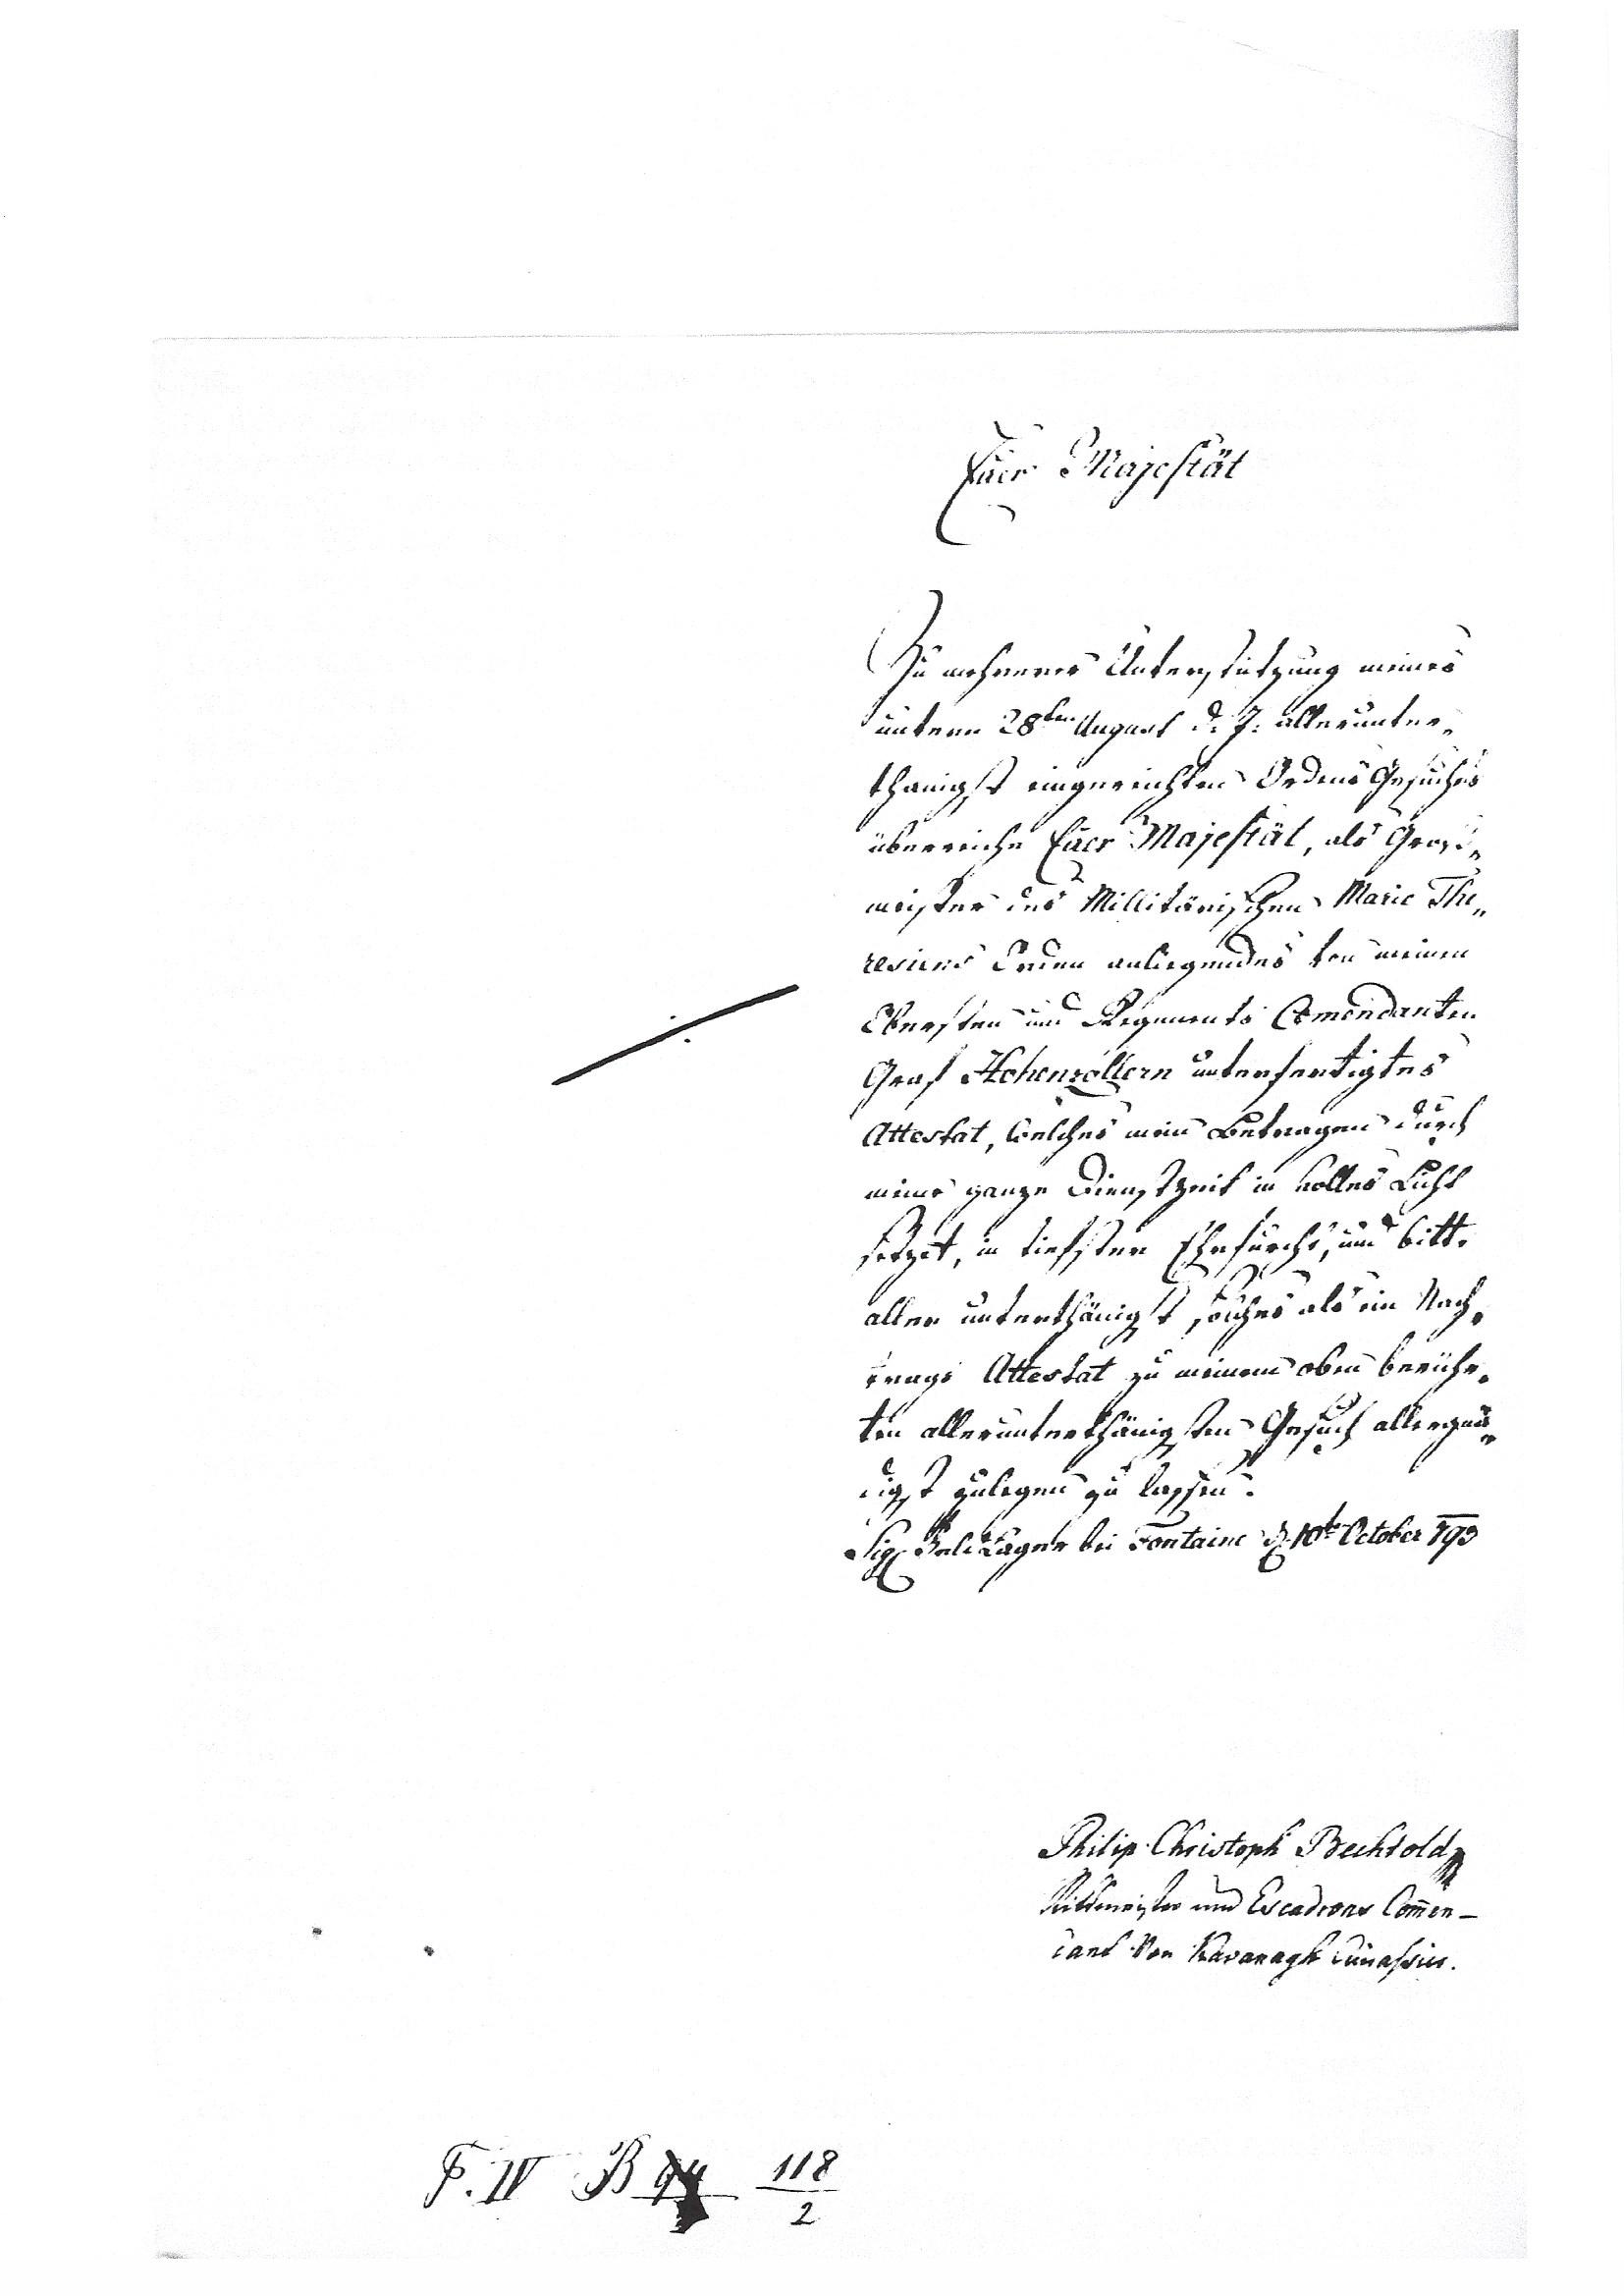 Euer Majestät
Zu mehrerer Unterstützung meines
unterm 28ten August d. J. allerunter„
thänigst eingereichten Ordens Gesuches
überreiche Euer Majestät, als Groß„
meister des Millitärischen Marie The„
resiens Orden anliegendes von meinem
Obersten und Regiments Comendanten
Graf Hohenzollern unterfertigtes
Attestat, welches mein Betragen durch
meine ganze Dienstzeit in volles Licht
setzet, in tiefster Ehrfurcht, und bitte
aller unterthänigst solches als ein Nach„
trags Attestat zu meinem oben berühr„
ten allerunterthänigsten Gesuch allergnä„
digst zulegen zu lassen.
Sig. Feld Lager bei Fontaine d. 10te October 793
Philip Christoph Bechtold
Rittmeister und Escadrons Com̄en-
dant von Kavanagh Cürassier.
F. IV B 118
2